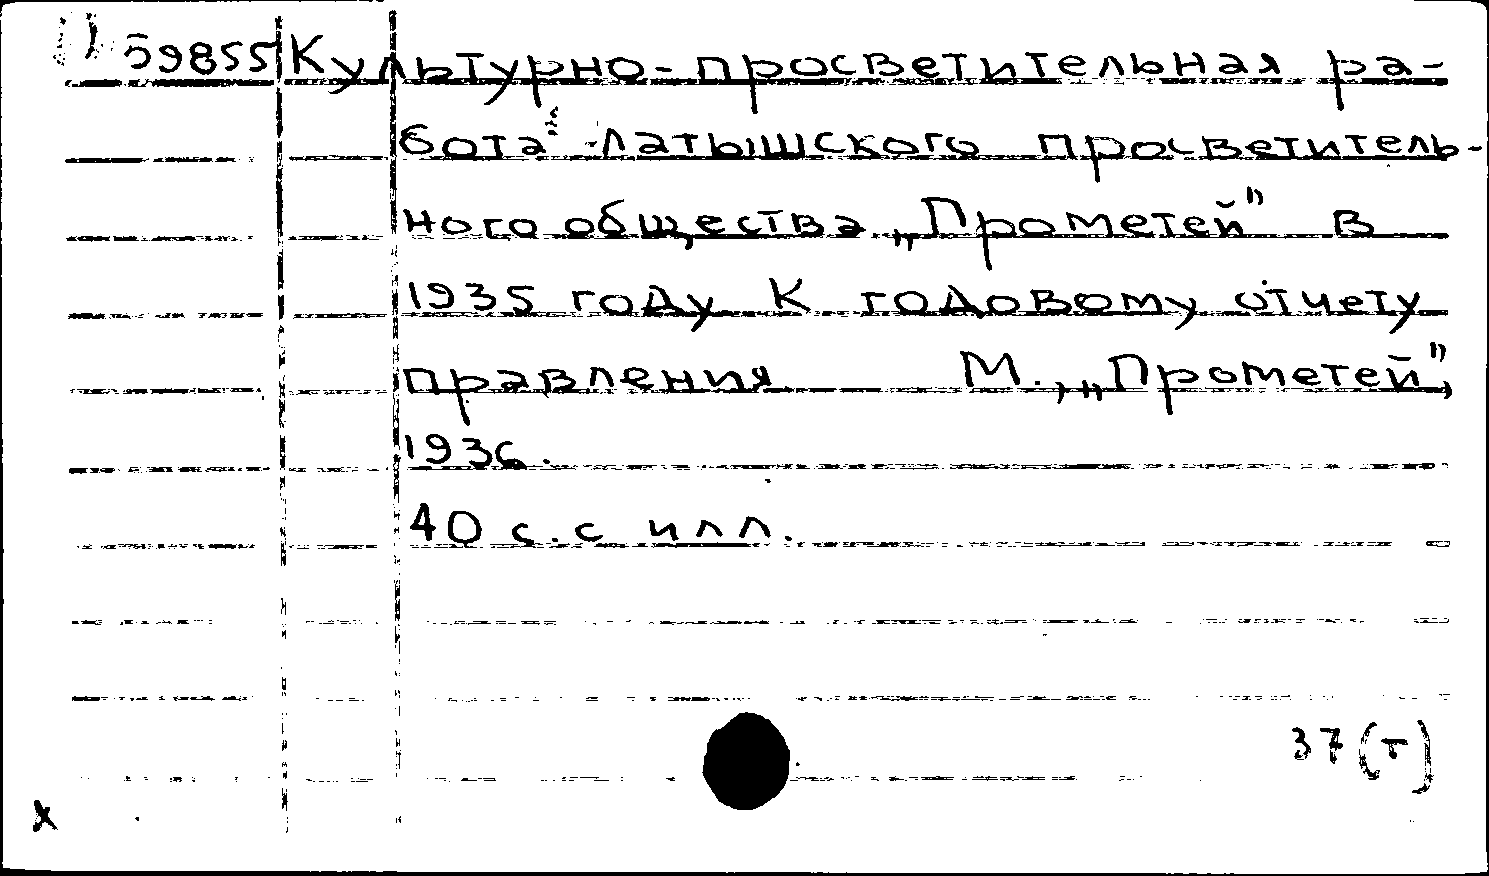 59855 Культурно-просветительная ра-
бота латышского просветитель-
ного общества „Прометей" в
1935 году К годовому отчету
правления М., „Прометей",
1936.
40 с. с илл.
37(т)
x